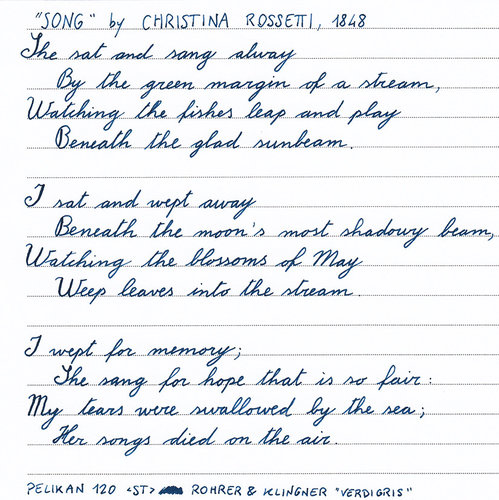 "SONG" by CHRISTINA ROSSETTI, 1848
She sat and sang alway
By the green margin of a stream,
Watching the fishes leap and play
Beneath the glad sunbeam.
I sat and wept away
Beneath the moon's most shadowy beam,
Watching the blossoms of May
Weep leaves into the stream.
I wept for memory;
She sang for hope that is so fair:
My tears were swallowed by the sea;
Her songs died on the air.
PELIKAN 120 <ST> ROHRER & KLINGNER "VERDIGRIS"